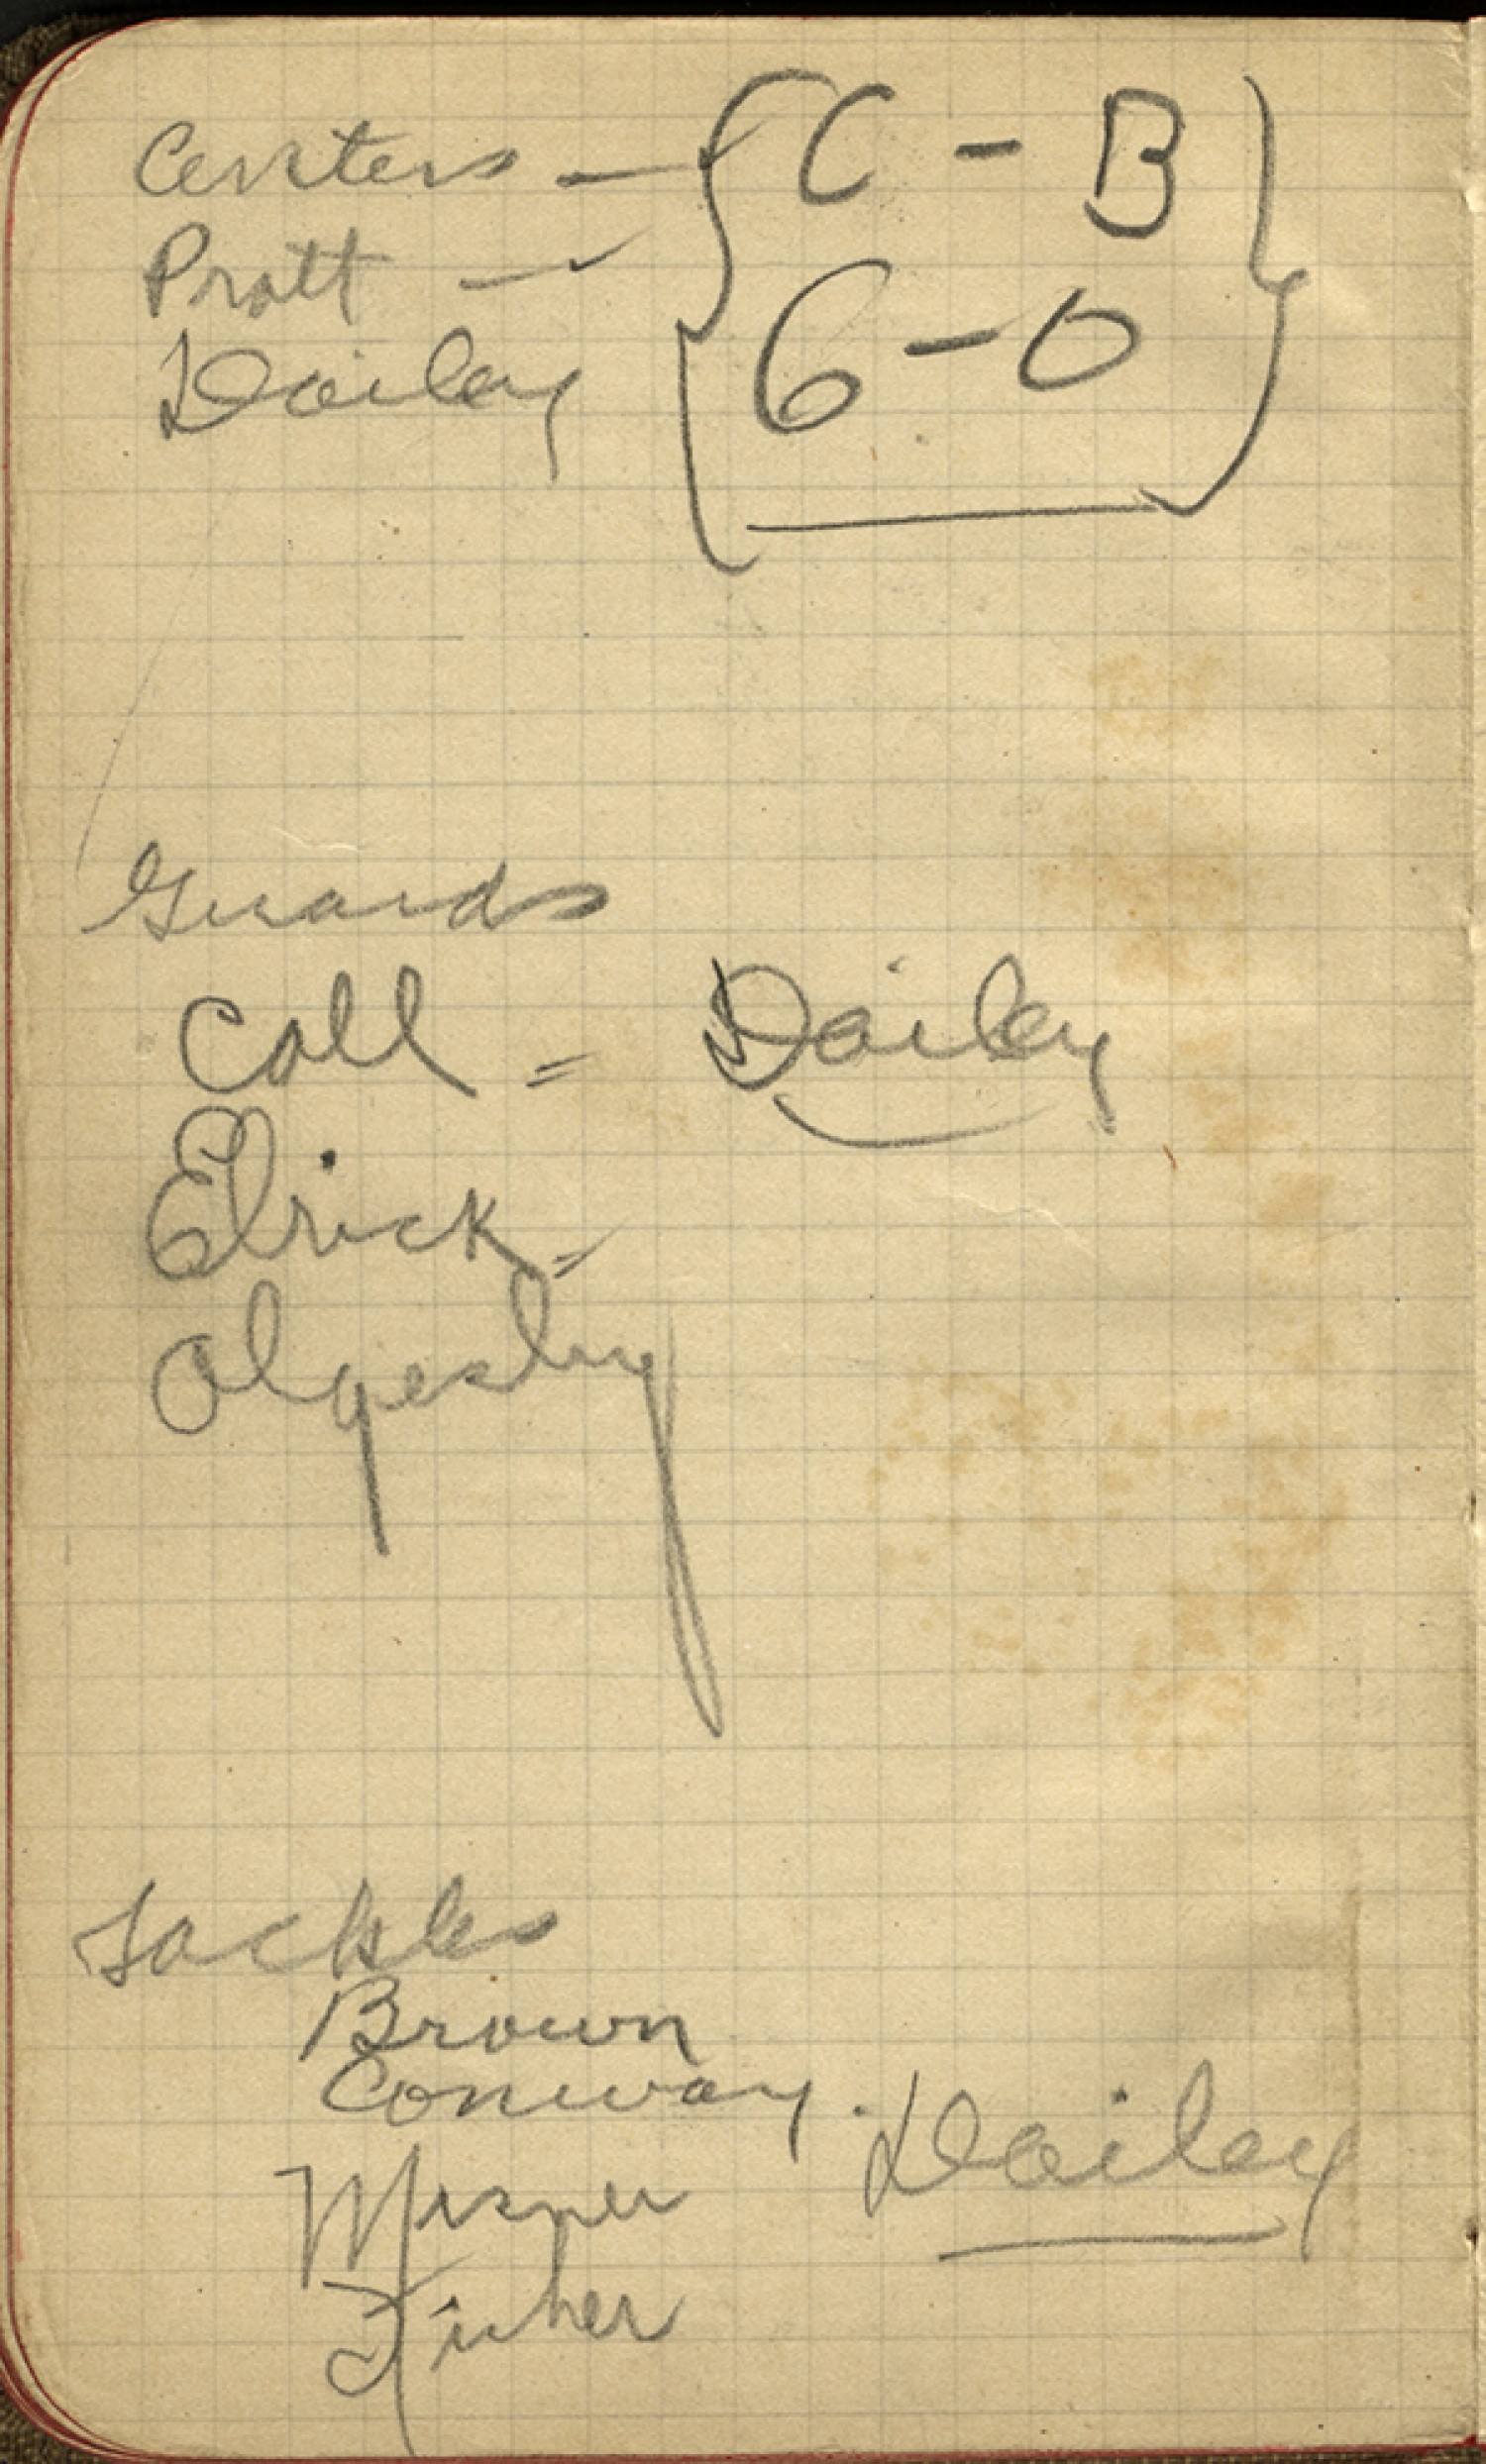 Centers — { C - B }
Pratt —
Dailey { 6 - 0 }
Guards
Call = Dailey
Elrick =
Olgesby
Tackles
Brown
Conway. Dailey
Misner
Fisher